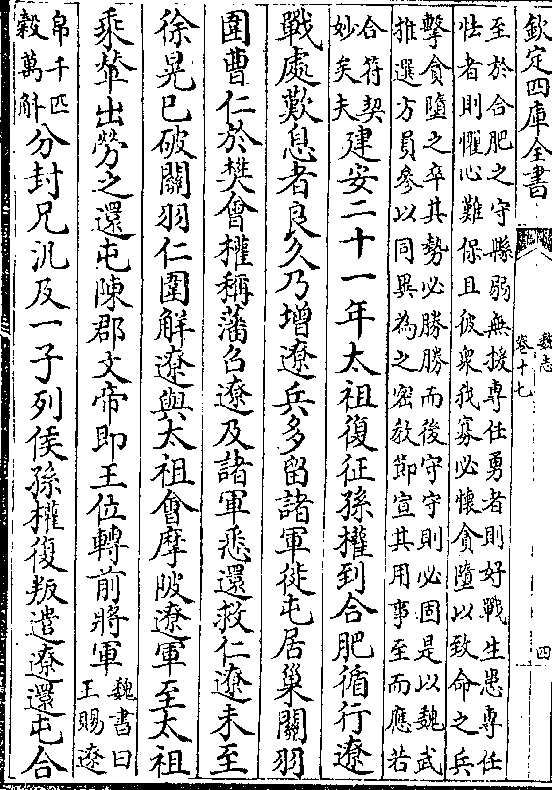 欽定四庫全書
魏志
卷十七
四
至於合肥之守縣弱無援專任勇者則好戰生患專任
怯者則懼心難保且彼衆我寡必懷貪墮以致命之兵
擊貪墮之卒其勢必勝勝而後守守則必固是以魏武
推選方員參以同異為之密教節宣其用事至而應若
合符契
妙矣夫
建安二十一年太祖復征孫權到合肥循行遼
戰處歎息者良久乃增遼兵多留諸軍徙屯居巢關羽
圍曹仁於樊會權稱藩召遼及諸軍悉還救仁遼未至
徐晃已破關羽仁圍解遼與太祖會摩陂遼軍至太祖
乘輦出勞之還屯陳郡文帝即王位轉前將軍
魏書曰
王賜遼
帛千匹
穀萬斛
分封兄汎及一子列侯孫權復叛遣遼還屯合